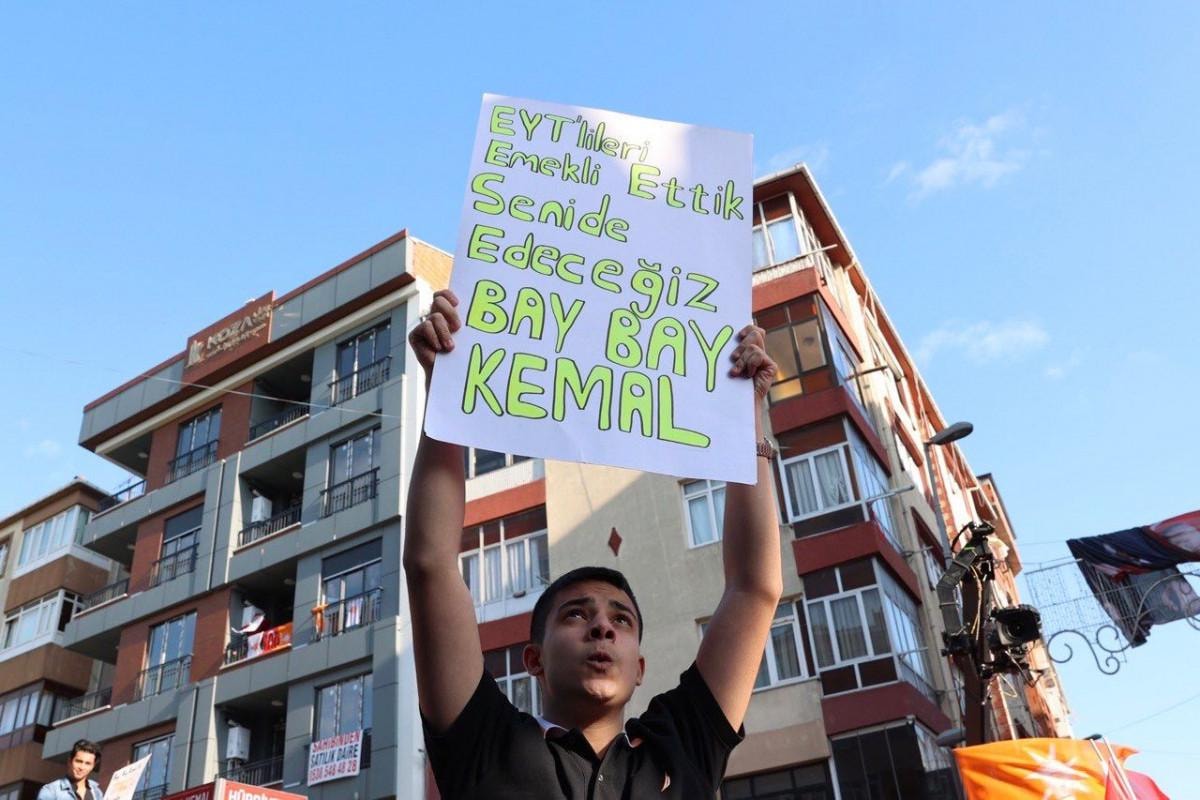 EYT'lileri
Emekli Ettik
Senide
Edeceğiz
BAY BAY
KEMAL
KOZA
SAHİBİNDEN
SATILIK DAİRE